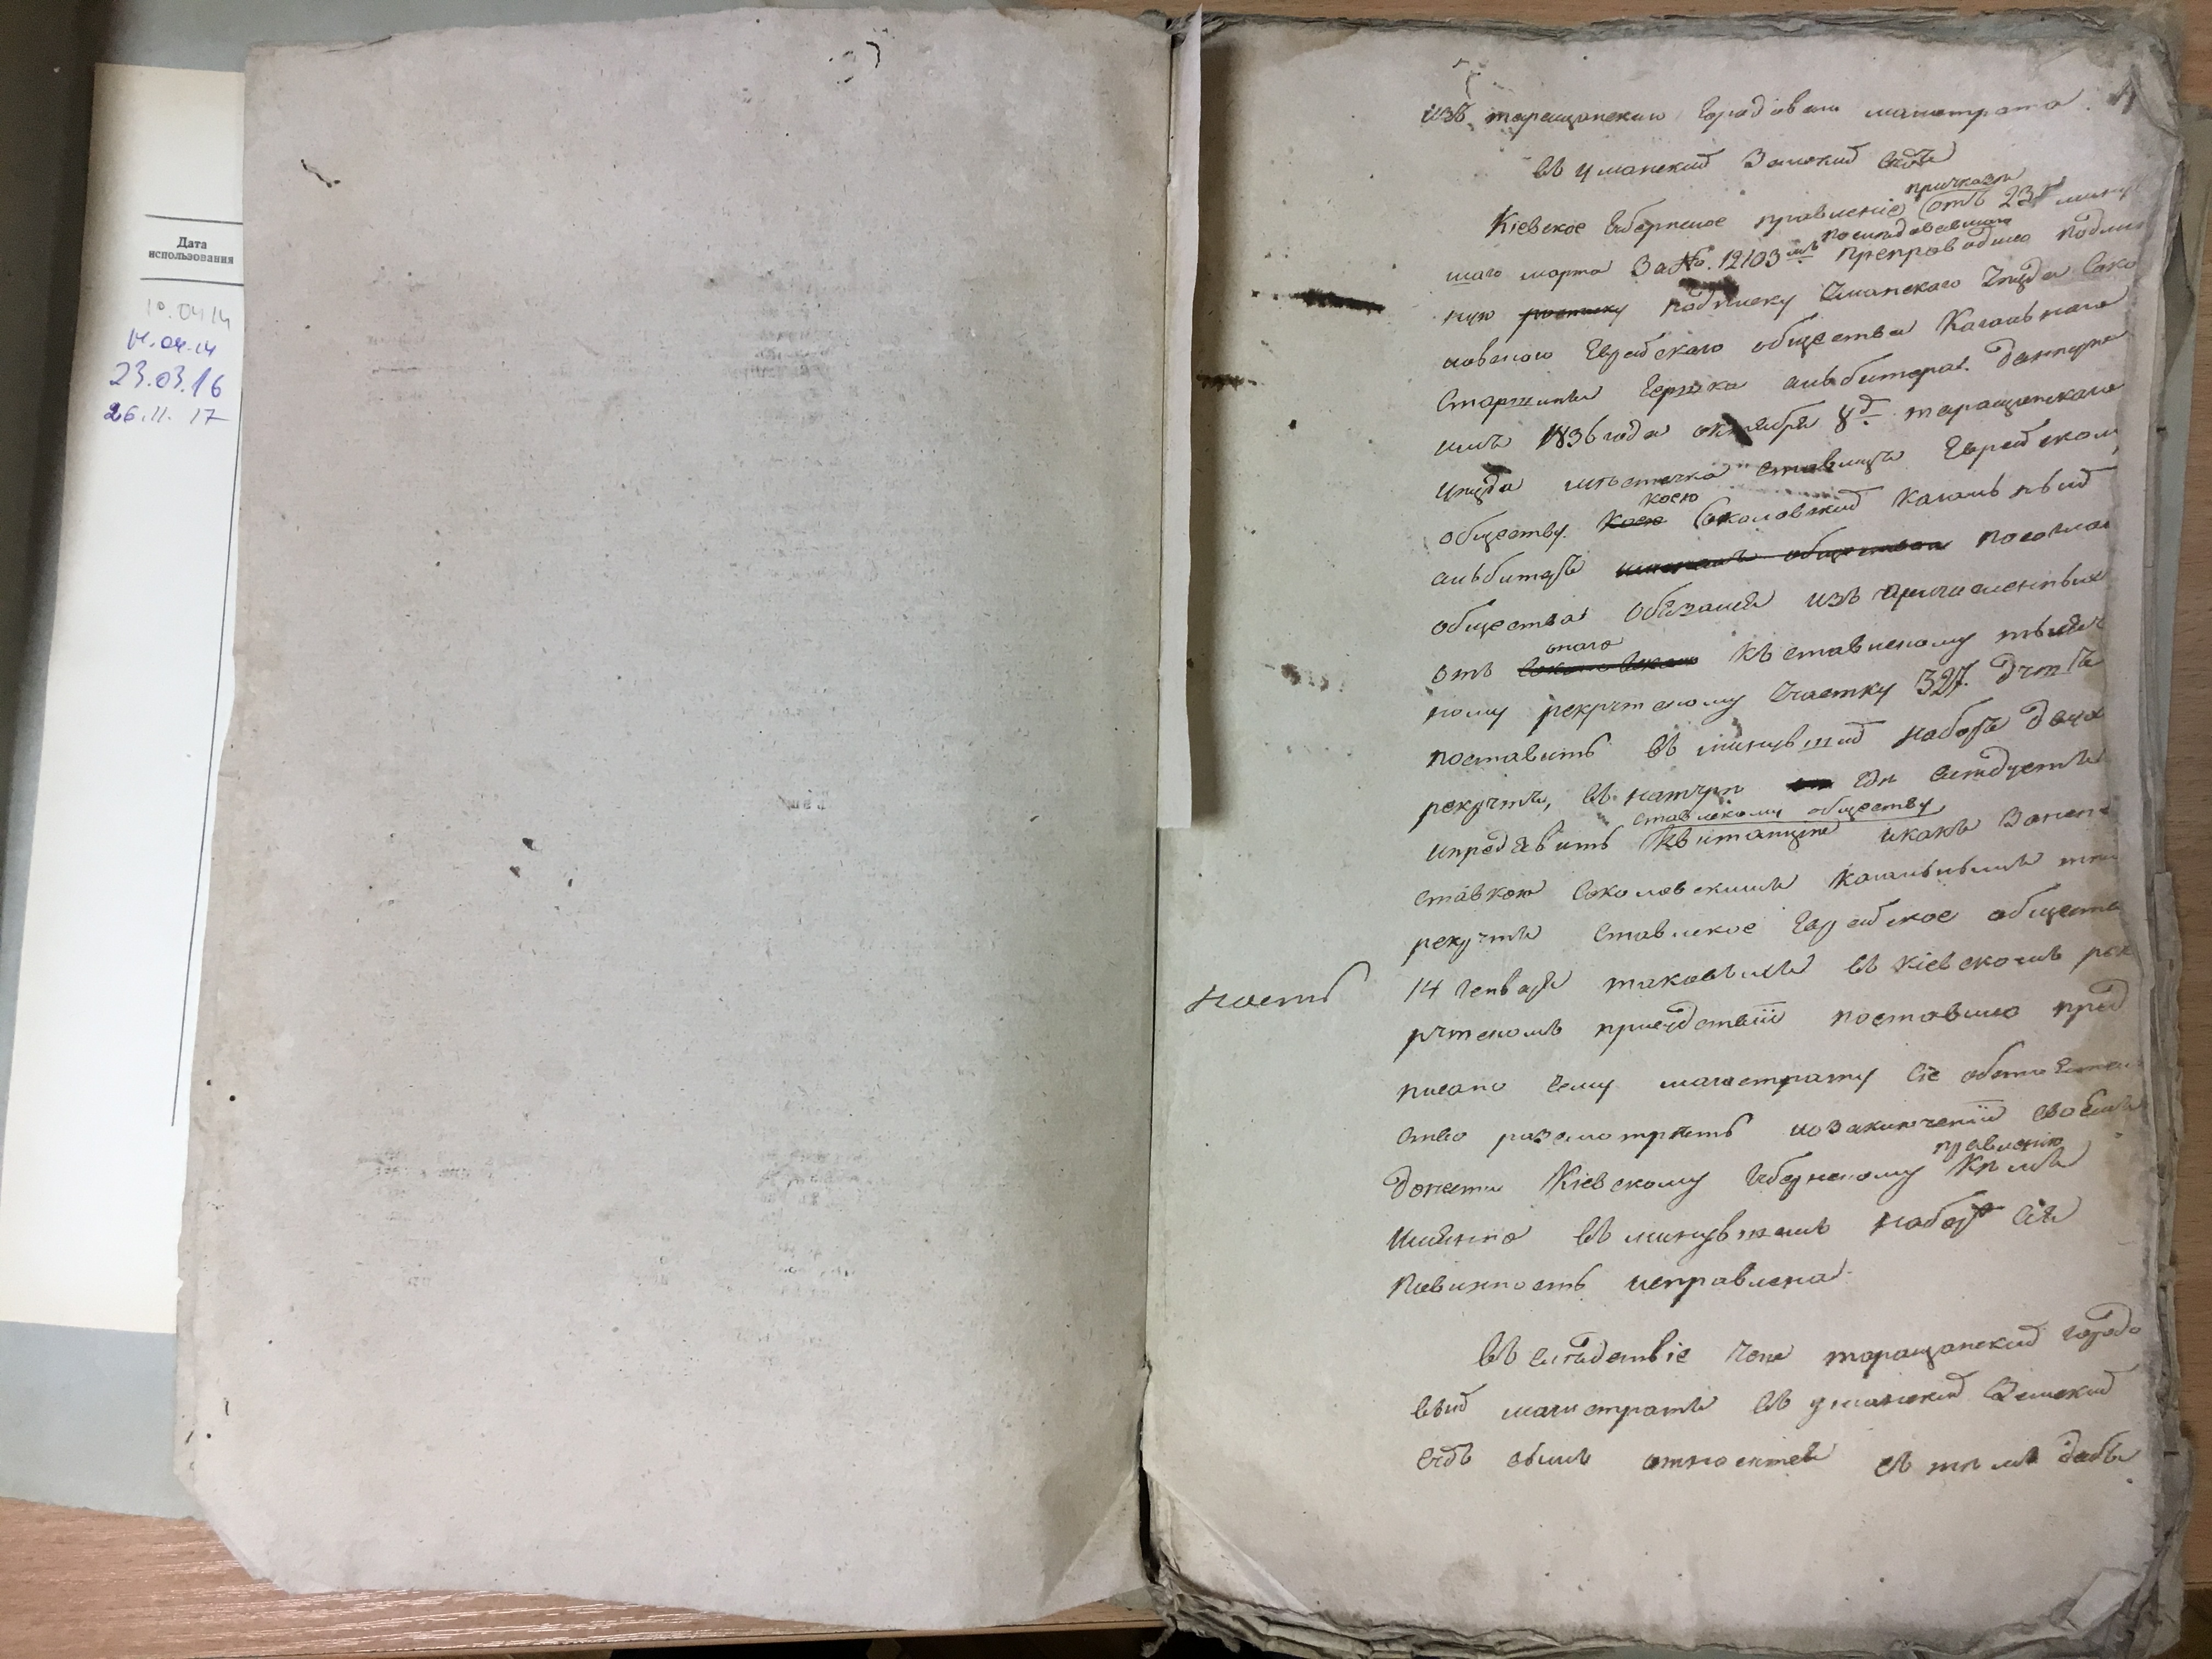 Дата
использования
10.04.14
14.04.14
23.03.16
26.11.17
изъ таращанскаго городоваго магистрата.
въ уманский Земский судъ
Кіевское губернское правленіе приказа отъ 23го минув
шаго марта За No. 12103мъ последовавшаго Препроводило подлин
ную росписку подписку Уманского уезда Соко
ловского Еврейскаго общества Кагальнаго
Старшины Гершка альбитера. данную
имъ 1836 года октября 8д. таращанскаго
уезда местечка ставищъ Еврейском
обществу. Коею коею Соколовский Кагальный
альбитеръ именемъ общества
общества обязался изъ причисленныхъ
отъ онаго къ ставискому
ному рекрутскому участку 327. душъ
поставить въ минувший наборъ двухъ
рекрутъ, въ натуре где следуетъ
ипредъявить Ставискому обществу квитанции икакъ Занепо
ставкою Соколовскимъ Кагальнымъ
рекрутъ Ставиское Еврейское обществ
14 генваря таковыхъ въ Кіевскомъ рек
рутскомъ присудствіи поставило пред
писано сему магистрату сіе обстоятель
ство разсмотреть изаключении своемъ
донести Кіевскому губернскому правленію
имянно въ минувшемъ наборе сія
Повинность исправлена.
ность
въ следствіе чего таращанский городо
вый магистратъ въ уманский Земский
судъ симъ относится съ темъ дабы